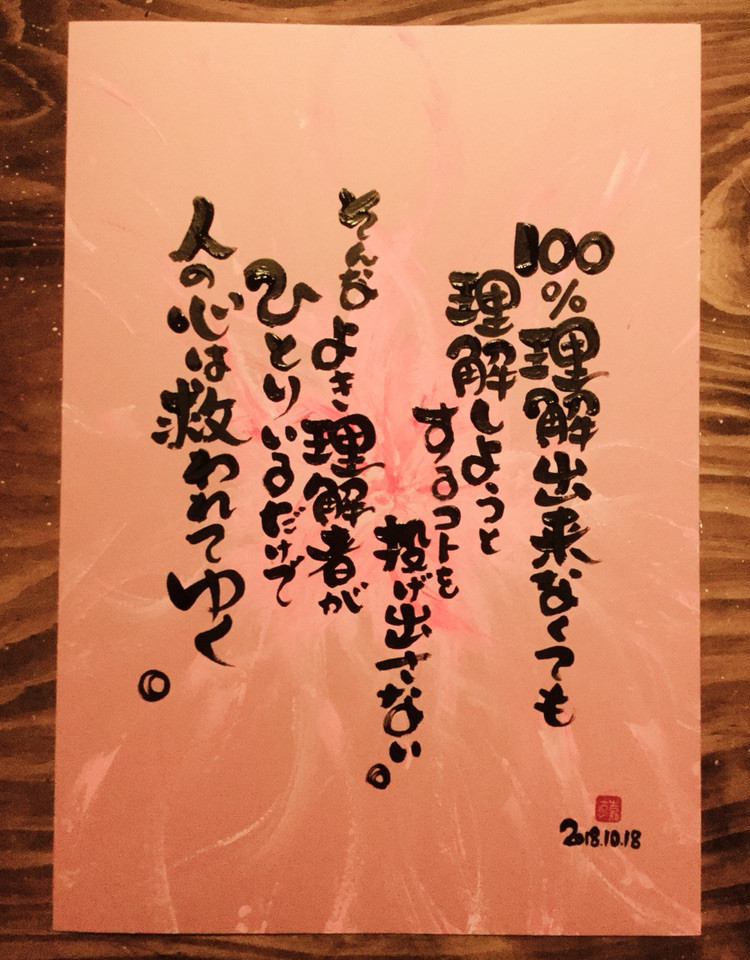 100%理解出来なくても
理解しようと
するコトを
投げ出さない。
そんな
よき理解者が
ひとりいるだけで
人の心は救われてゆく
。
2018.10.18